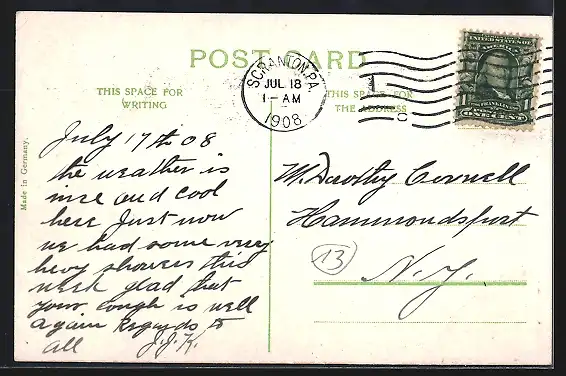 POST CARD
THIS SPACE FOR
WRITING
THIS SPACE FOR
THE ADDRESS
SCRANTON, PA.
JUL 18
1-AM
1908
1
UNITED STATES OF
AMERICA
FRANKLIN
ONE CENT
Made in Germany.
July 17th 08
the weather is
nice and cool
here Just now
we had some very
hevy showers this
week glad that
your cough is well
again Regards to
all J.J.K.
M. Dorothy Cornell
Hammondsport
13
N.Y.